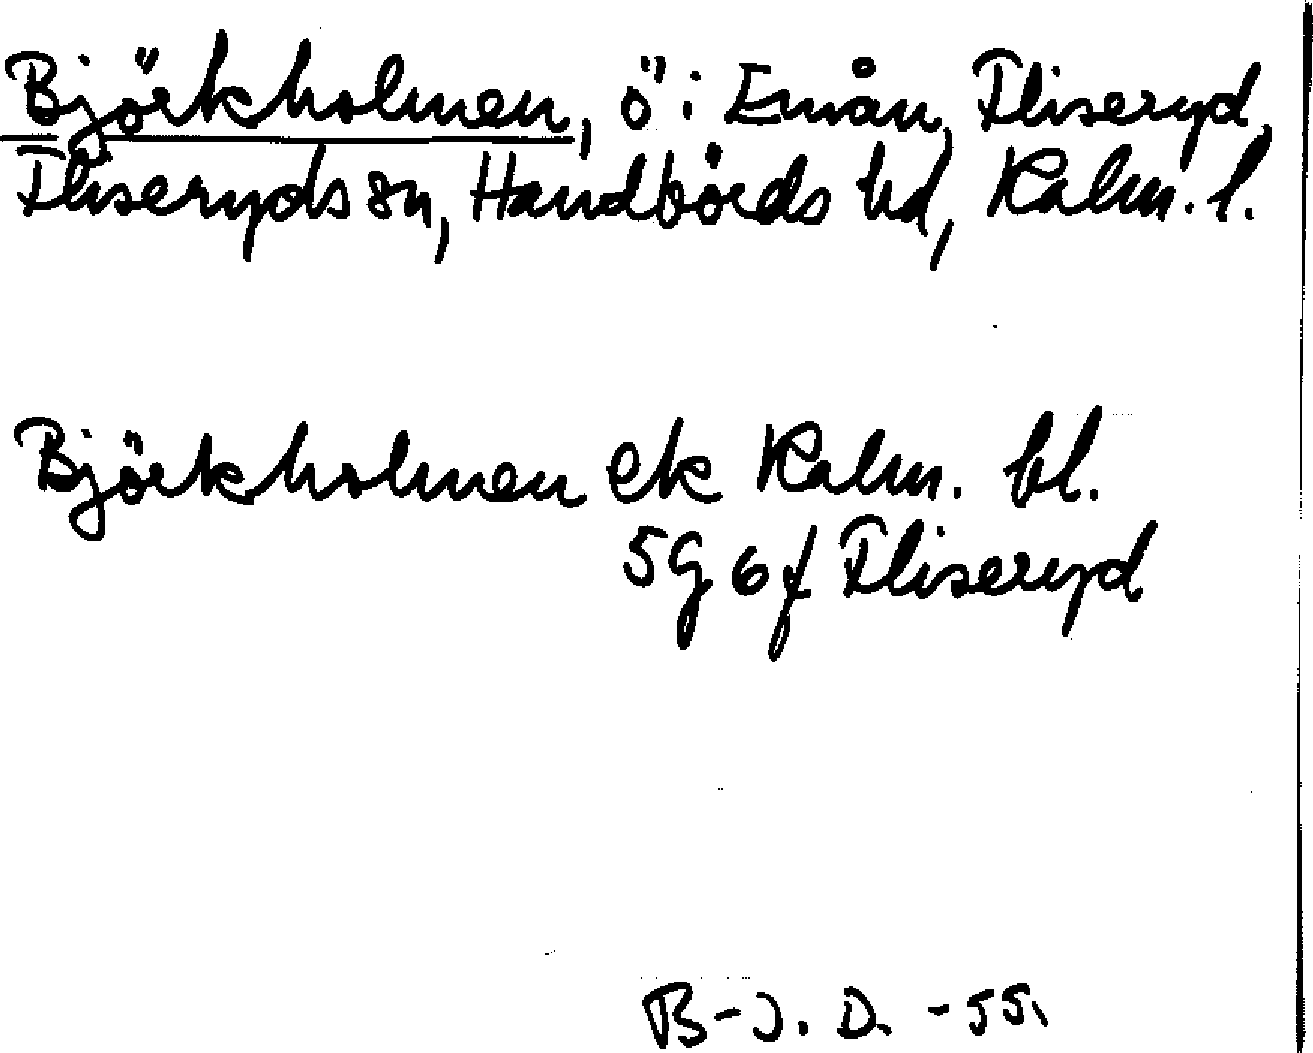 Björkholmen, ö i Emån, Fliseryd,
Fliseryds sn, Handbörds hd, Kalm. l.
Björkholmen ek Kalm. bl.
5G 6f Fliseryd
B-J. D. -55.